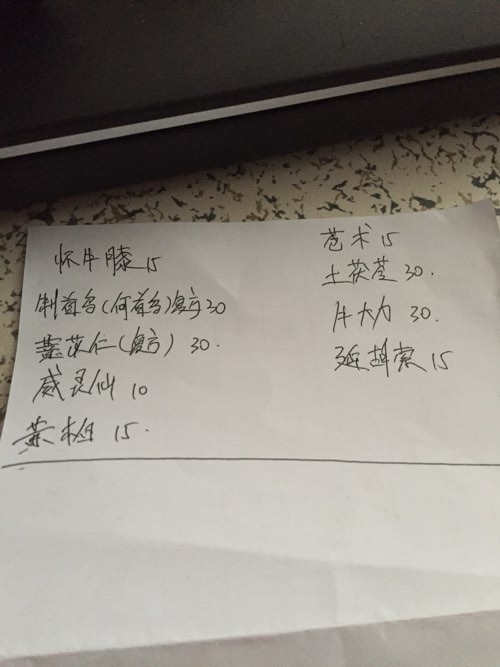 怀牛膝15
制首乌(何首乌)复方30
薏苡仁(复方) 30.
威灵仙 10
黄柏 15.
苍术 15
土茯苓 30.
牛大力 30.
延胡索 15